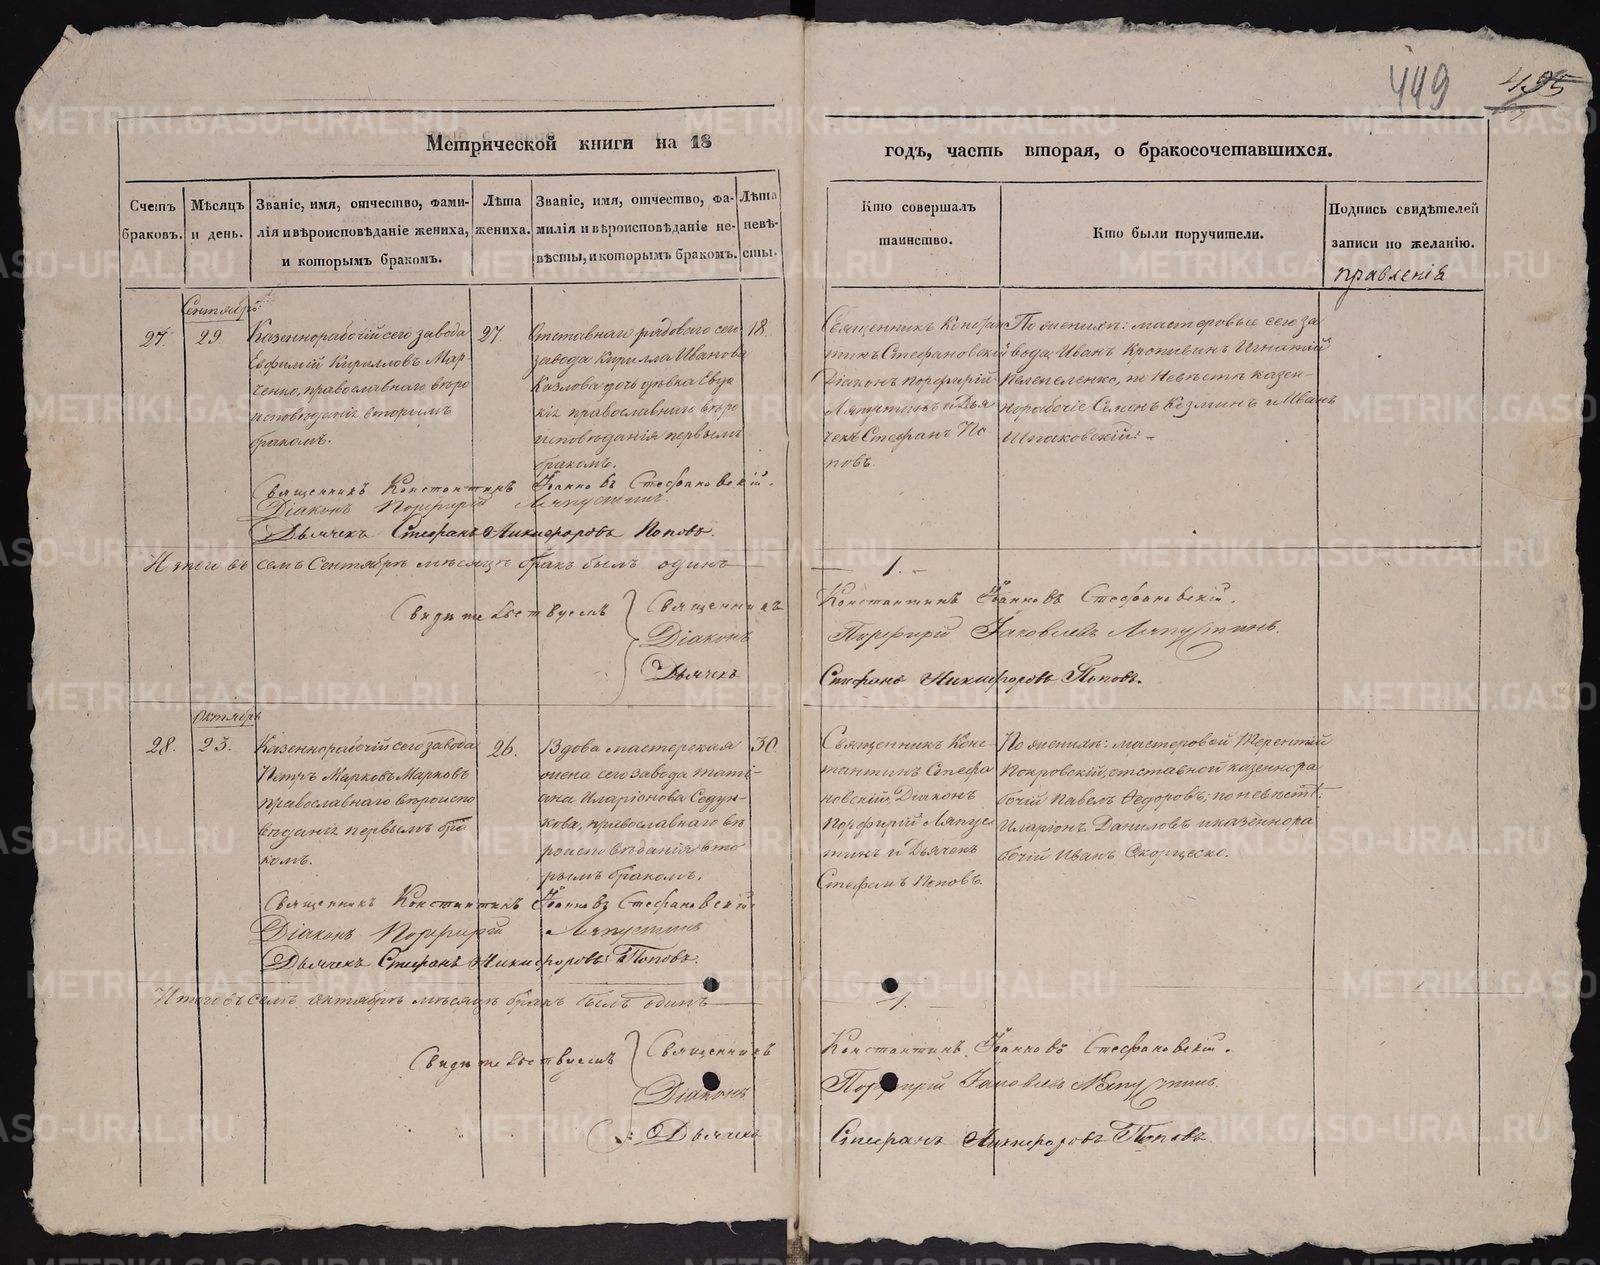 449
495
Метрической книги на 18
годъ, часть вторая, о бракосочетавшихся.
Счетъ браковъ.
Мѣсяцъ и день.
Званіе, имя, отчество, фами-
лія и вѣроисповѣданіе жениха,
и которымъ бракомъ.
Лѣта
жениха.
Званіе, имя, отчество, фа-
милія и вѣроисповѣданіе не-
вѣсты, и которымъ бракомъ.
Лѣта
невѣ-
сты.
Кто совершалъ
таинство.
Кто были поручители.
Подпись свидѣтелей
записи по желанію.
правленія
Сентябрь
27.
29.
Казеннорабочій сего завода
Евфимій Кирилловъ Мар
ченко, православнаго вѣро
исповѣданія вторымъ
бракомъ.
27.
Отставнаго рядоваго сего
завода Кирилла Иванова
Козлова дочь дѣвка Евдо
кія православнаго вѣро
исповѣданія первымъ
бракомъ.
18.
Священникъ Констан
тинъ Стефановскій
Діаконъ Порфирій
Ляпустинъ и Дья
чекъ Стефанъ По
повъ.
По женихѣ: мастеровые сего за
вода Иванъ Кропивинъ Игнатій
Пелепеленко, по Невѣстѣ казен-
норабочіе Семенъ Козминъ и Иванъ
Шпаковскій. -
Священникъ Константинъ Іоанновъ Стефановскій.
Діаконъ Порфирій Ляпустинъ.
Дьячекъ Стефанъ Никифоровъ Поповъ.
Итого въ семъ Сентябрѣ мѣсяцѣ бракъ былъ одинъ
1. -
Свидѣтельствуемъ
Священникъ
Константинъ Іоанновъ Стефановскій.
Діаконъ
Порфирій Іаковлевъ Ляпустинъ.
Дьячекъ
Стефанъ Никифоровъ Поповъ.
Октябрь
28.
23.
Казеннорабочій сего завода
Петръ Марковъ Марковъ
православнаго вѣроиспо
вѣданія первымъ бра
комъ.
26.
Вдова мастерская
жена сего завода Тати-
ана Иларіонова Седун-
кова, православнаго вѣ
роисповѣданія вто
рымъ бракомъ.
30.
Священникъ Конс-
тантинъ Стефа
новскій, Діаконъ
Порфирій Ляпус
тинъ и Дьячекъ
Стефанъ Поповъ.
По женихѣ: мастеровой Терентій
Покровскій, отставной казеннора
бочій Павелъ Федоровъ; по невѣстѣ:
Иларіонъ Даниловъ и казеннора
бочій Иванъ
Священникъ Константинъ Іоанновъ Стефановскій.
Діаконъ Порфирій Ляпустинъ
Дьячекъ Стефанъ Никифоровъ Поповъ.
Итого въ семъ октябрѣ мѣсяцѣ бракъ былъ одинъ
1. -
Свидѣтельствуемъ
Священникъ
Константинъ Іоанновъ Стефановскій.
Діаконъ
Порфирій Іаковлевъ Ляпустинъ.
Дьячекъ
Стефанъ Никифоровъ Поповъ
METRIKI.GASO-URAL.RU